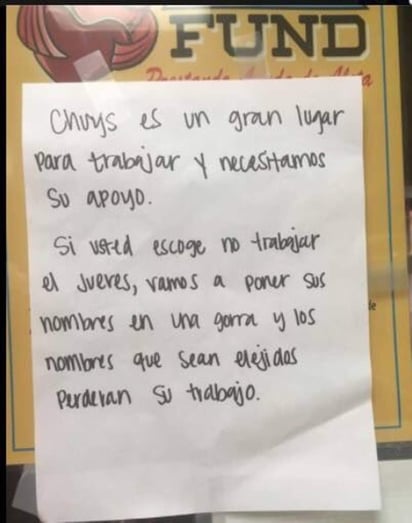 FUND
Chuys es un gran lugar
para trabajar y necesitamos
su apoyo.
Si usted escoge no trabajar
el jueves, vamos a poner sus
nombres en una gorra y los
nombres que sean elejidos
perderan su trabajo.